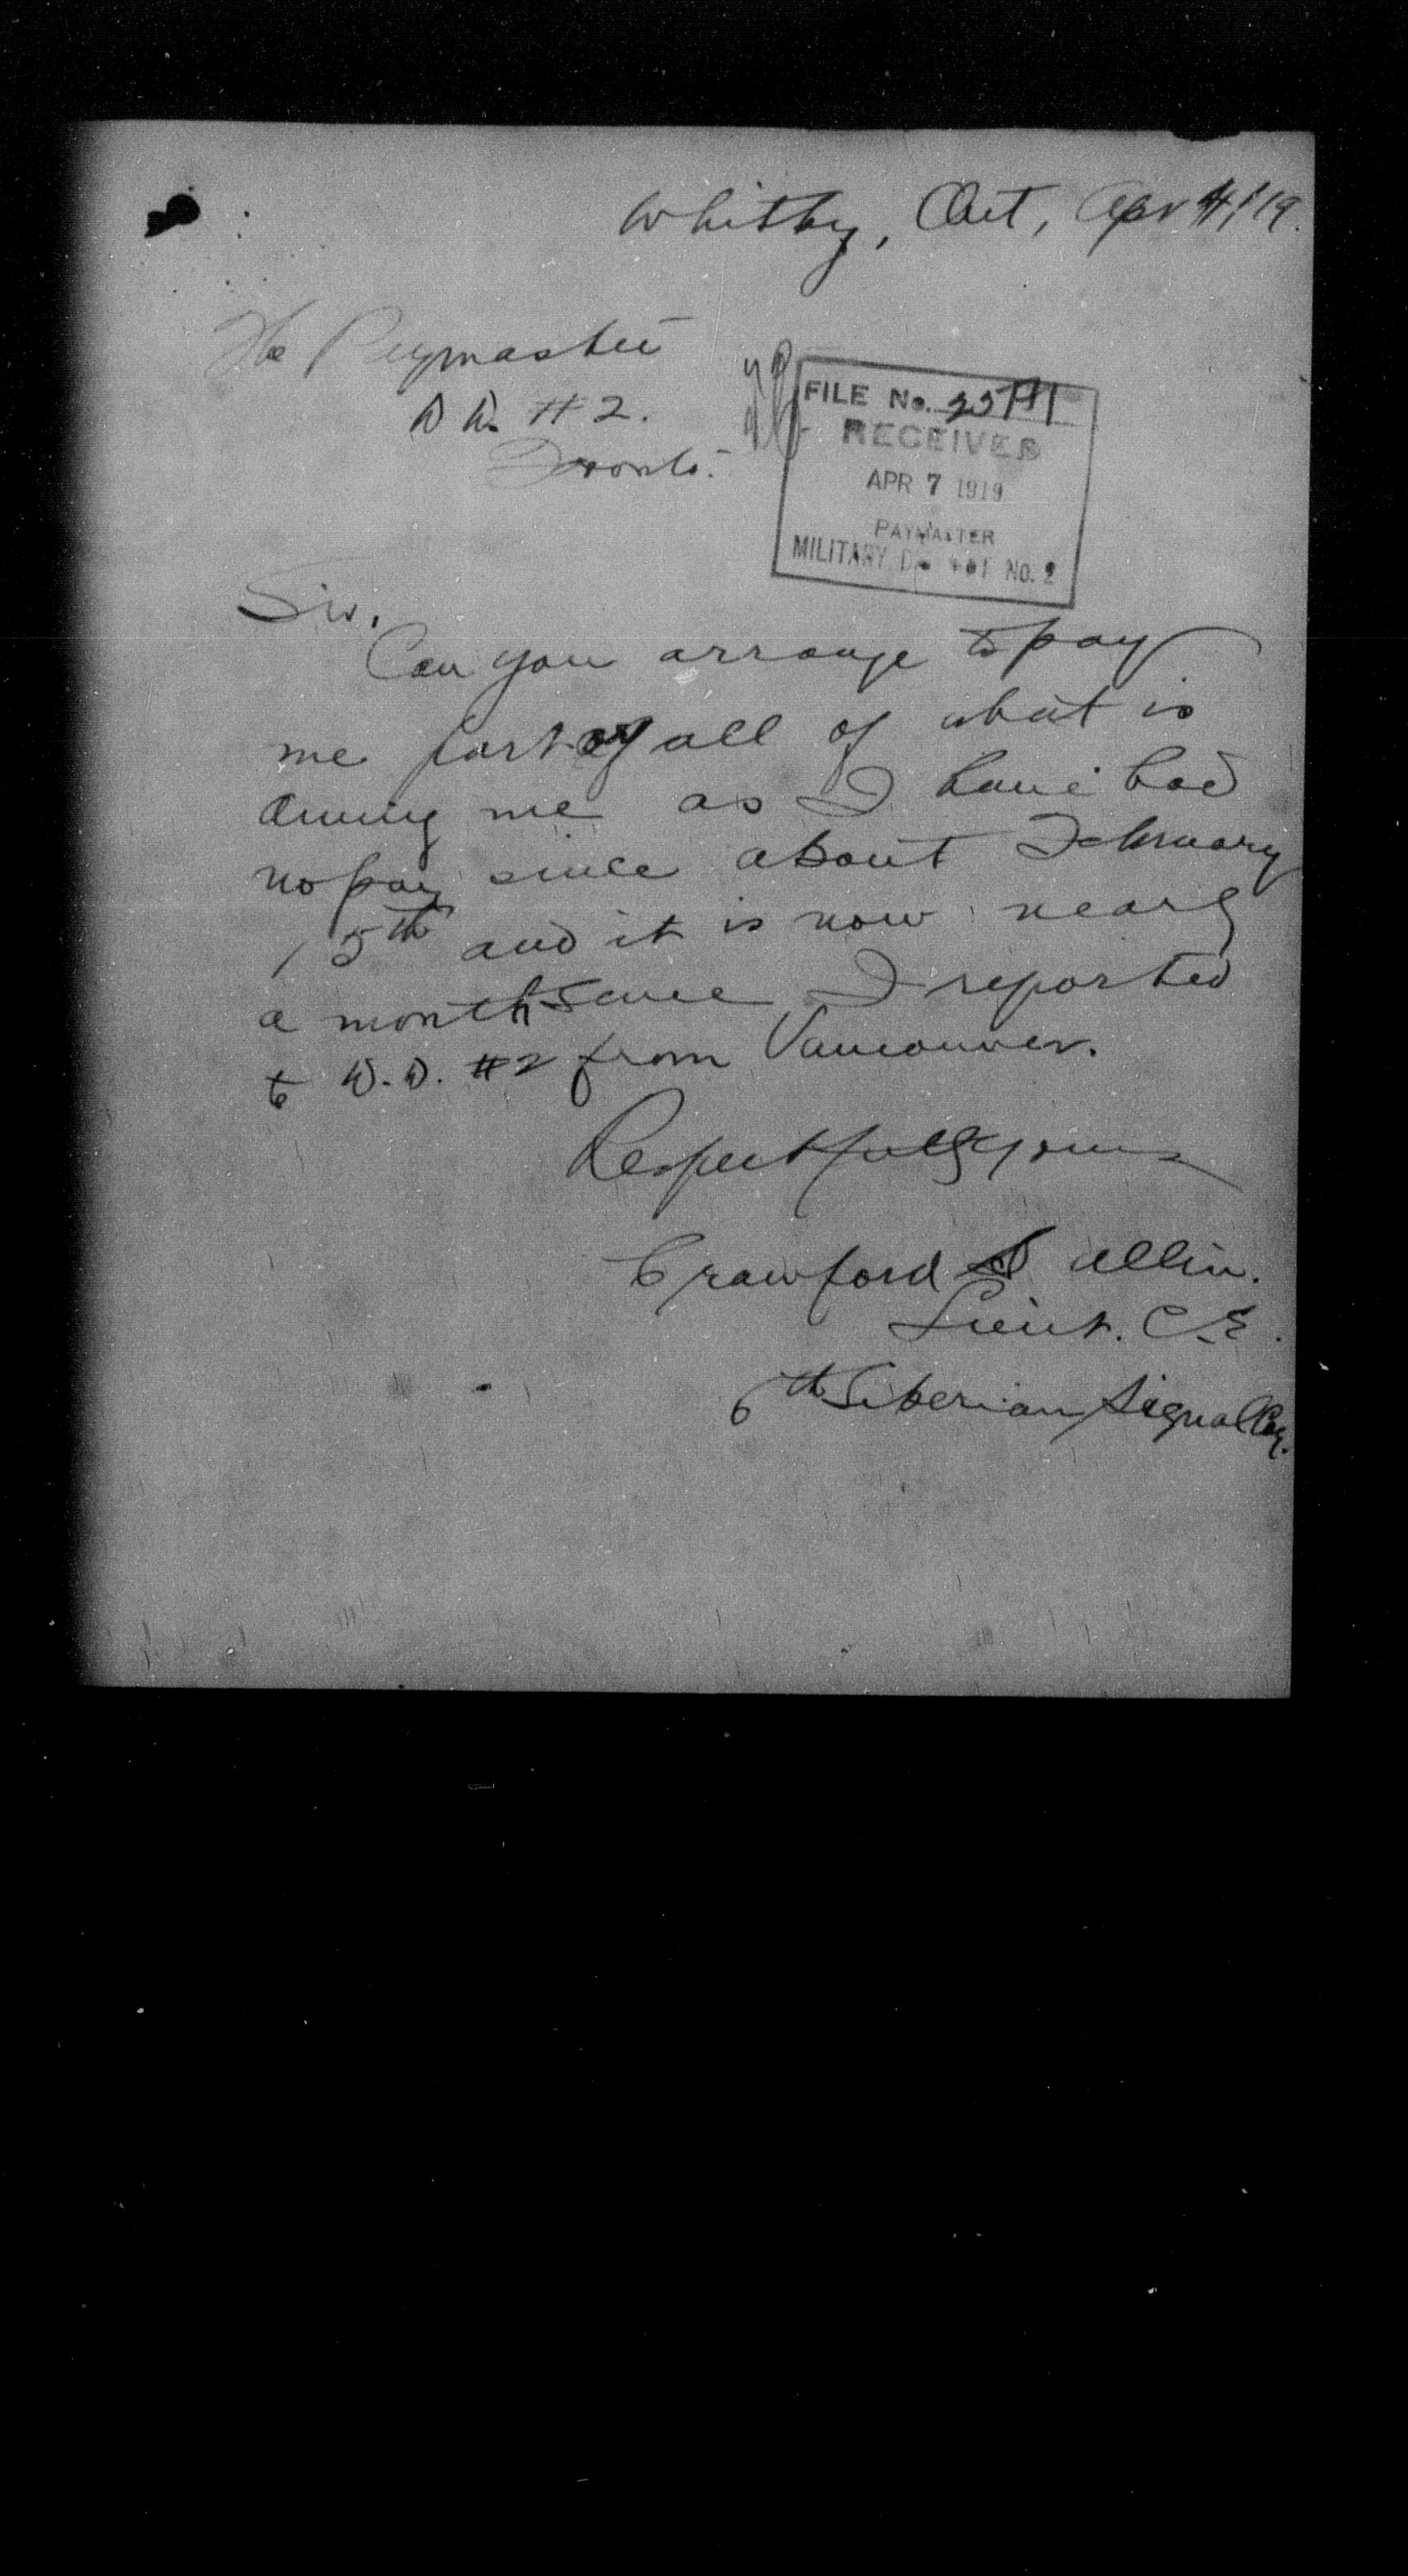 Whitby, Ont, Apr 4/19.
The Paymaster
D D. #2.
Toronto.
FILE No.
RECEIVED
APR 7 1919
PAYMASTER
MILITARY DISTRICT No. 2
Sir,
Can you arrange to pay
me part or all of what is
owing me as I have had
no pay since about February
15th and it is now nearly
a month since I reported
to D.D. #2 from Vancouver.
Respectfully yours
Crawford S Allin.
Lieut. C.E.
6th Siberian Signal Coy.